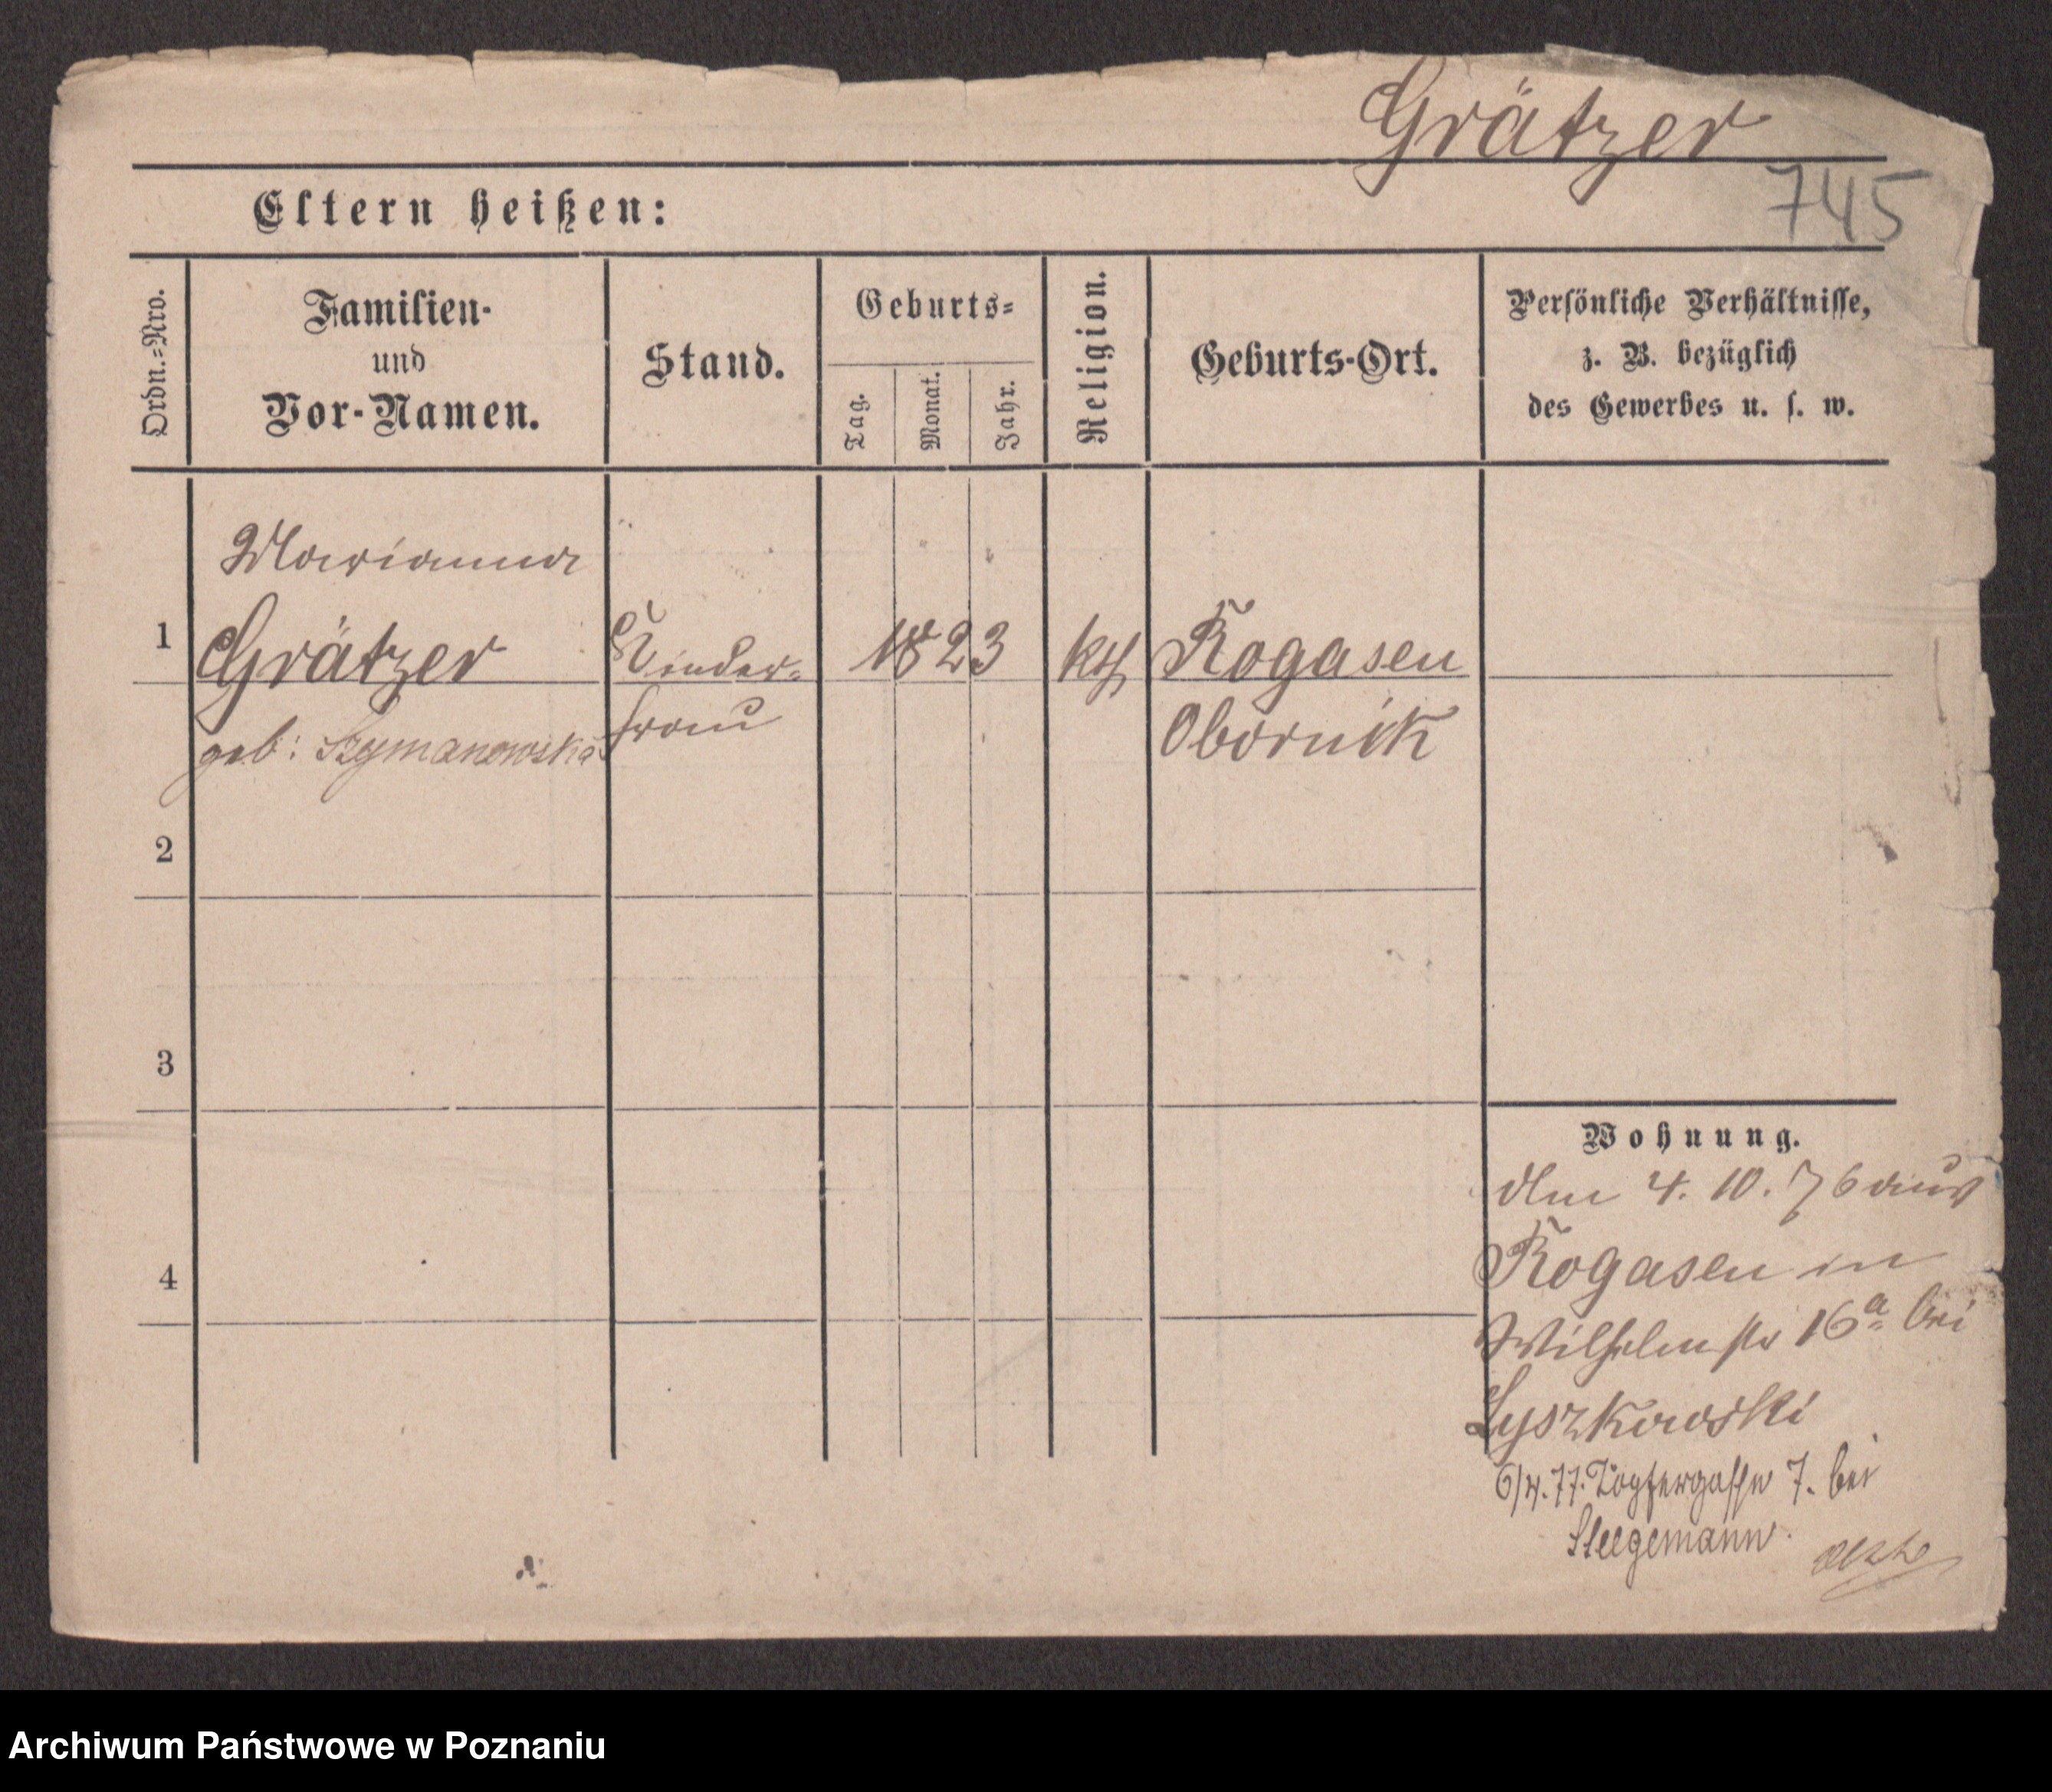 Grätzer
745
Eltern heißen:
Ordn.-Nro.
Familien-
und
Vor-Namen.
Stand.
Geburts-
Tag.
Monat.
Jahr.
Religion.
Geburts-Ort.
Persönliche Verhältnisse,
z. B. bezüglich
des Gewerbes u. s. w.
Marianna
1 Grätzer Kinder- 1823 kth Rogasen
geb: Szymanowska frau Obornik
2
3
4
Wohnung.
Am 4. 10. 76 aus
Rogasen in
Wilhelmstr 16a bei
Lyszkowski
6/4.77. Töpfergasse 7. bei
Steegemann.
Archiwum Państwowe w Poznaniu